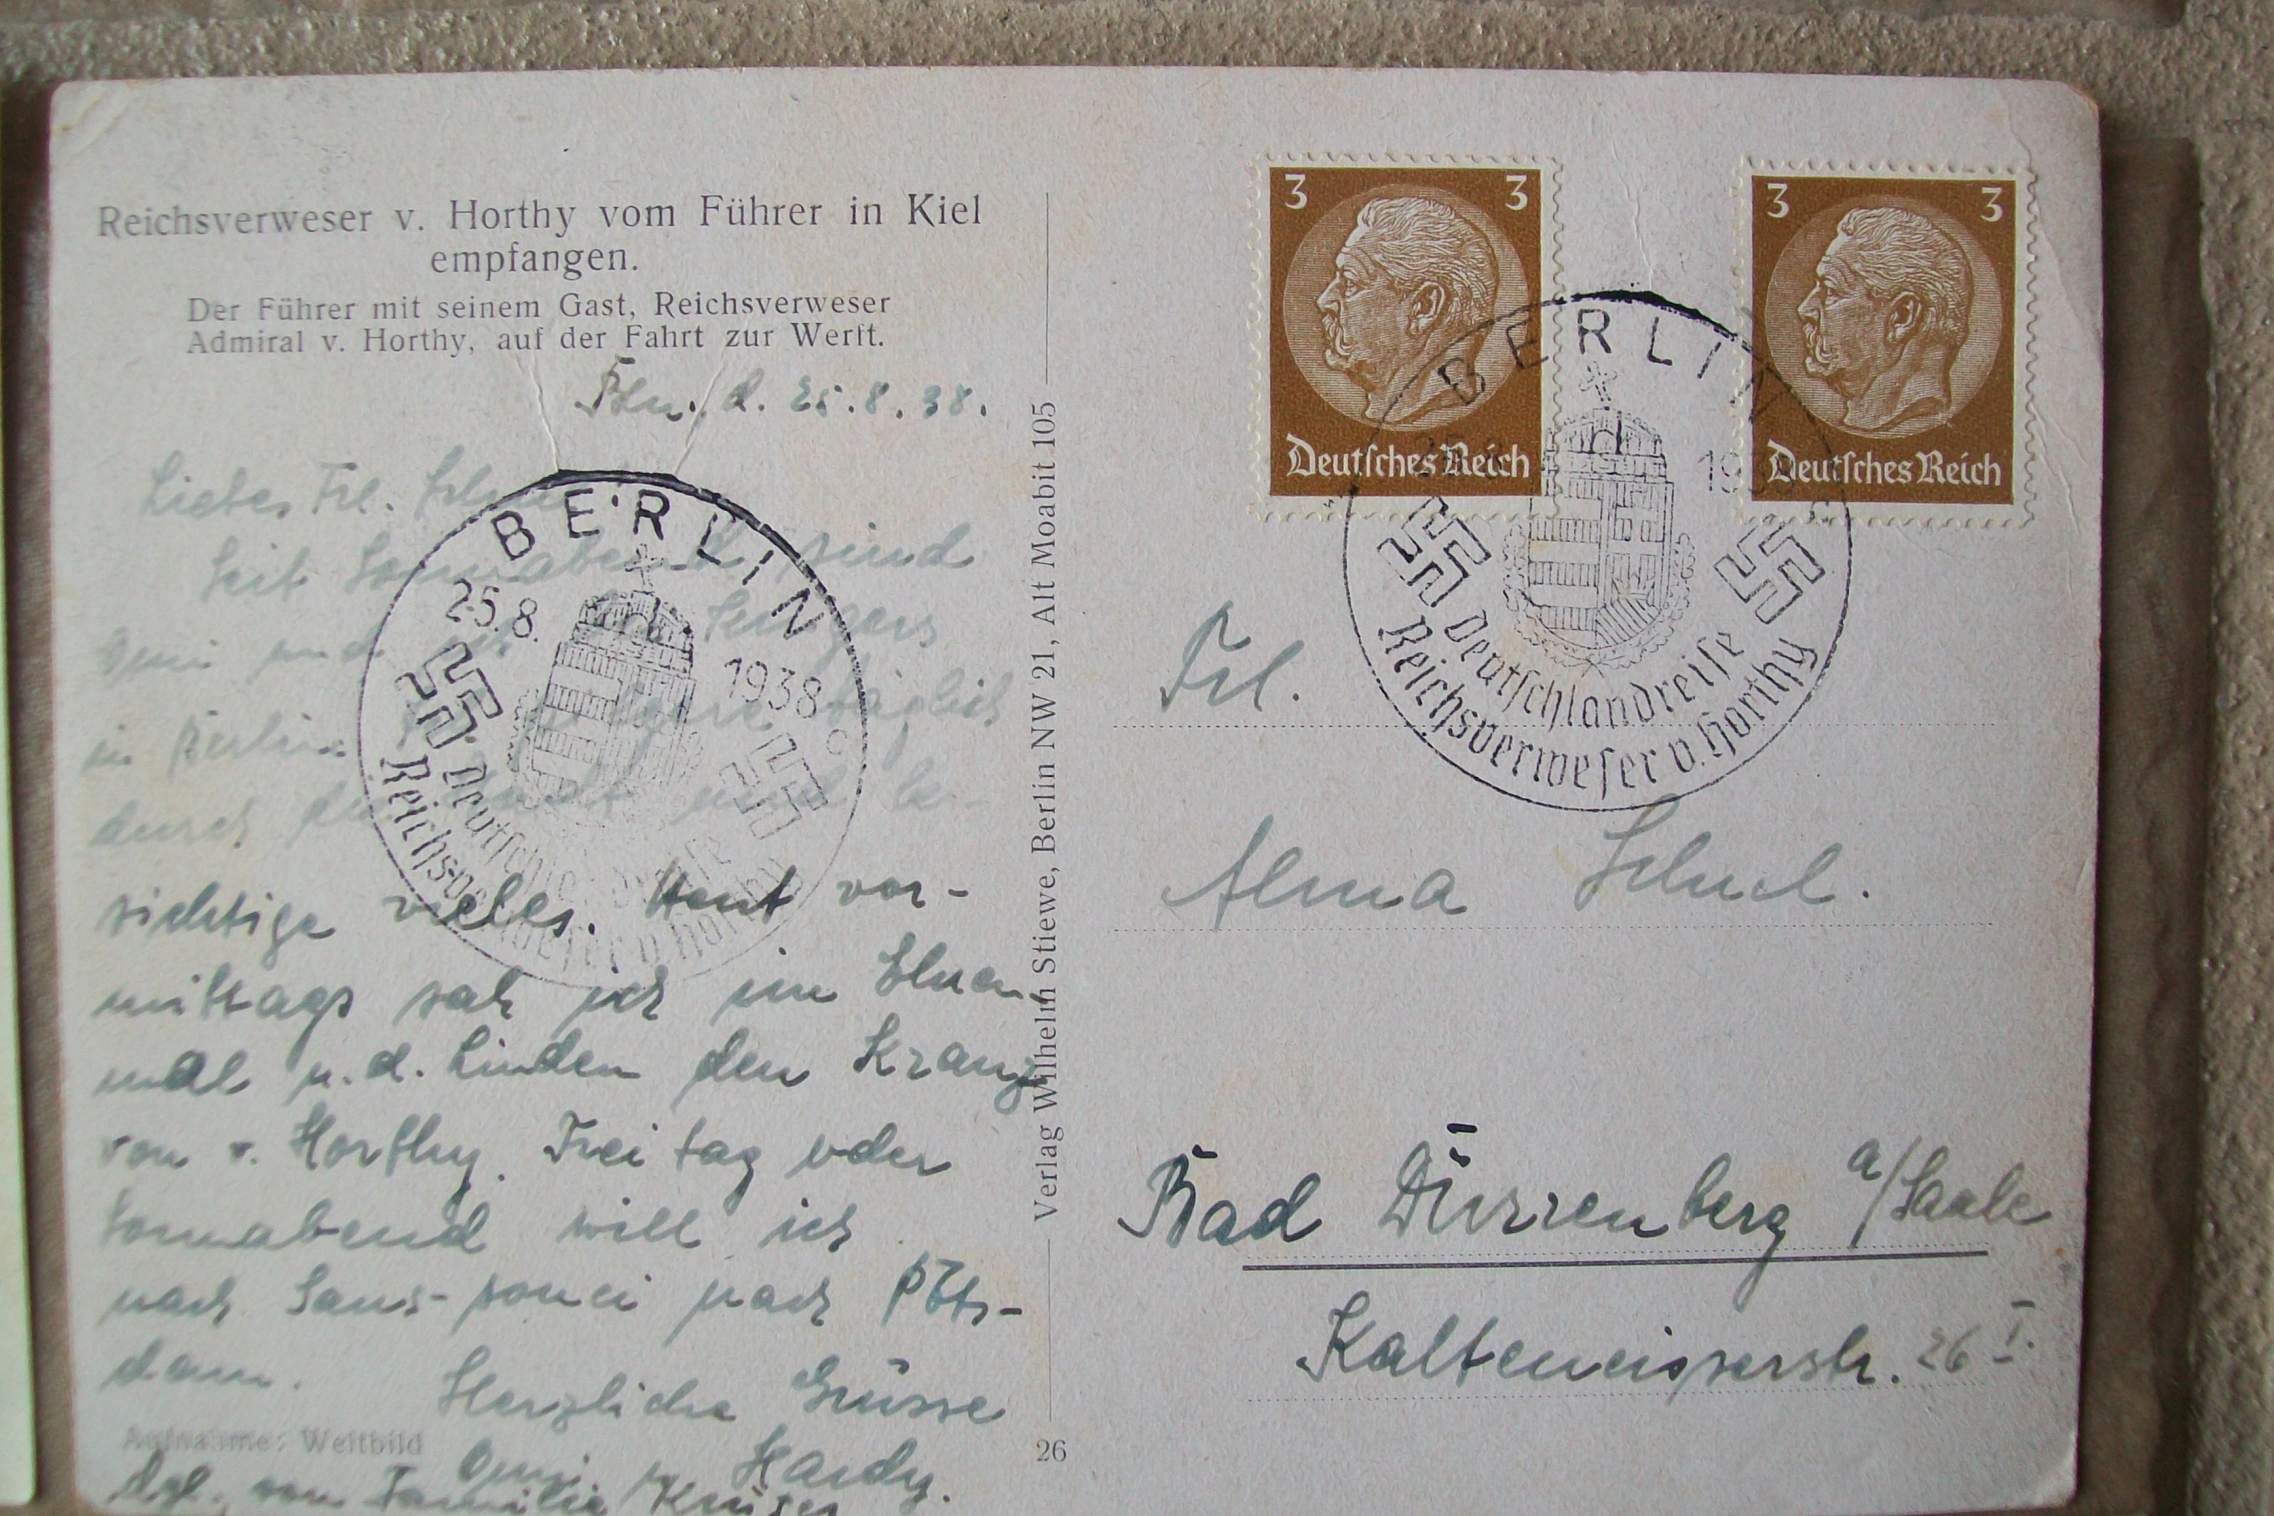 Reichsverweser v. Horthy vom Führer in Kiel
empfangen.
Der Führer mit seinem Gast, Reichsverweser
Admiral v. Horthy, auf der Fahrt zur Werft.
Bln., d. 25.8.38.
Liebes Frl.
Seit Sonnabend sind
Omi und
in Berlin. täglich
durch die und be-
sichtige vieles. Heut vor-
mittags sah ich im Ehren
mal u. d. Linden den Kranz
von v. Horthy. Freitag oder
Sonnabend will ich
nach Sans-souci nach Pots-
dam.
Herzliche Grüsse
Omi. Hardy.
Aufnahme: Weltbild
dgl. von Familie Krüger
Verlag Wilhelm Stiewe, Berlin NW 21, Alt Moabit 105
26
BERLIN
25.8. 1938
c
Deutschlandreise
Reichsverweser v. Horthy
3 3
Deutsches Reich
3 3
Deutsches Reich
BERLIN
19
Deutschlandreise
Reichsverweser v. Horthy
Frl.
Alma
Bad Dürrenberg a/Saale
26 I.